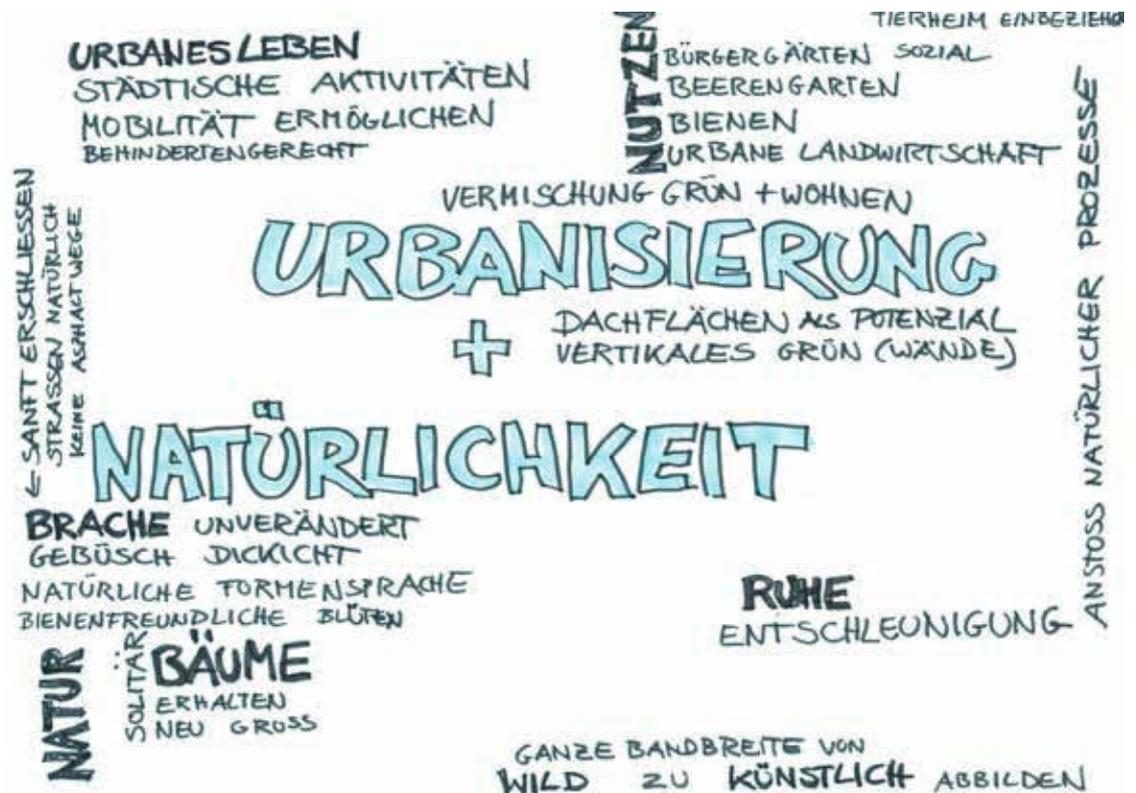 TIERHEIM EINBEZIEHEN
URBANES LEBEN
STÄDTISCHE AKTIVITÄTEN
MOBILITÄT ERMÖGLICHEN
BEHINDERTENGERECHT
NUTZEN
BÜRGERGÄRTEN SOZIAL
BEERENGARTEN
BIENEN
URBANE LANDWIRTSCHAFT
VERMISCHUNG GRÜN + WOHNEN
URBANISIERUNG
+
DACHFLÄCHEN ALS POTENZIAL
VERTIKALES GRÜN (WÄNDE)
NATÜRLICHKEIT
← SANFT ERSCHLIESSEN
STRASSEN NATÜRLICH
KEINE ASPHALTWEGE
ANSTOSS NATÜRLICHER PROZESSE
BRACHE UNVERÄNDERT
GEBÜSCH DICKICHT
NATÜRLICHE FORMENSPRACHE
BIENENFREUNDLICHE BLÜTEN
NATUR
SOLITÄR
BÄUME
ERHALTEN
NEU GROSS
RUHE
ENTSCHLEUNIGUNG
GANZE BANDBREITE VON
WILD ZU KÜNSTLICH ABBILDEN